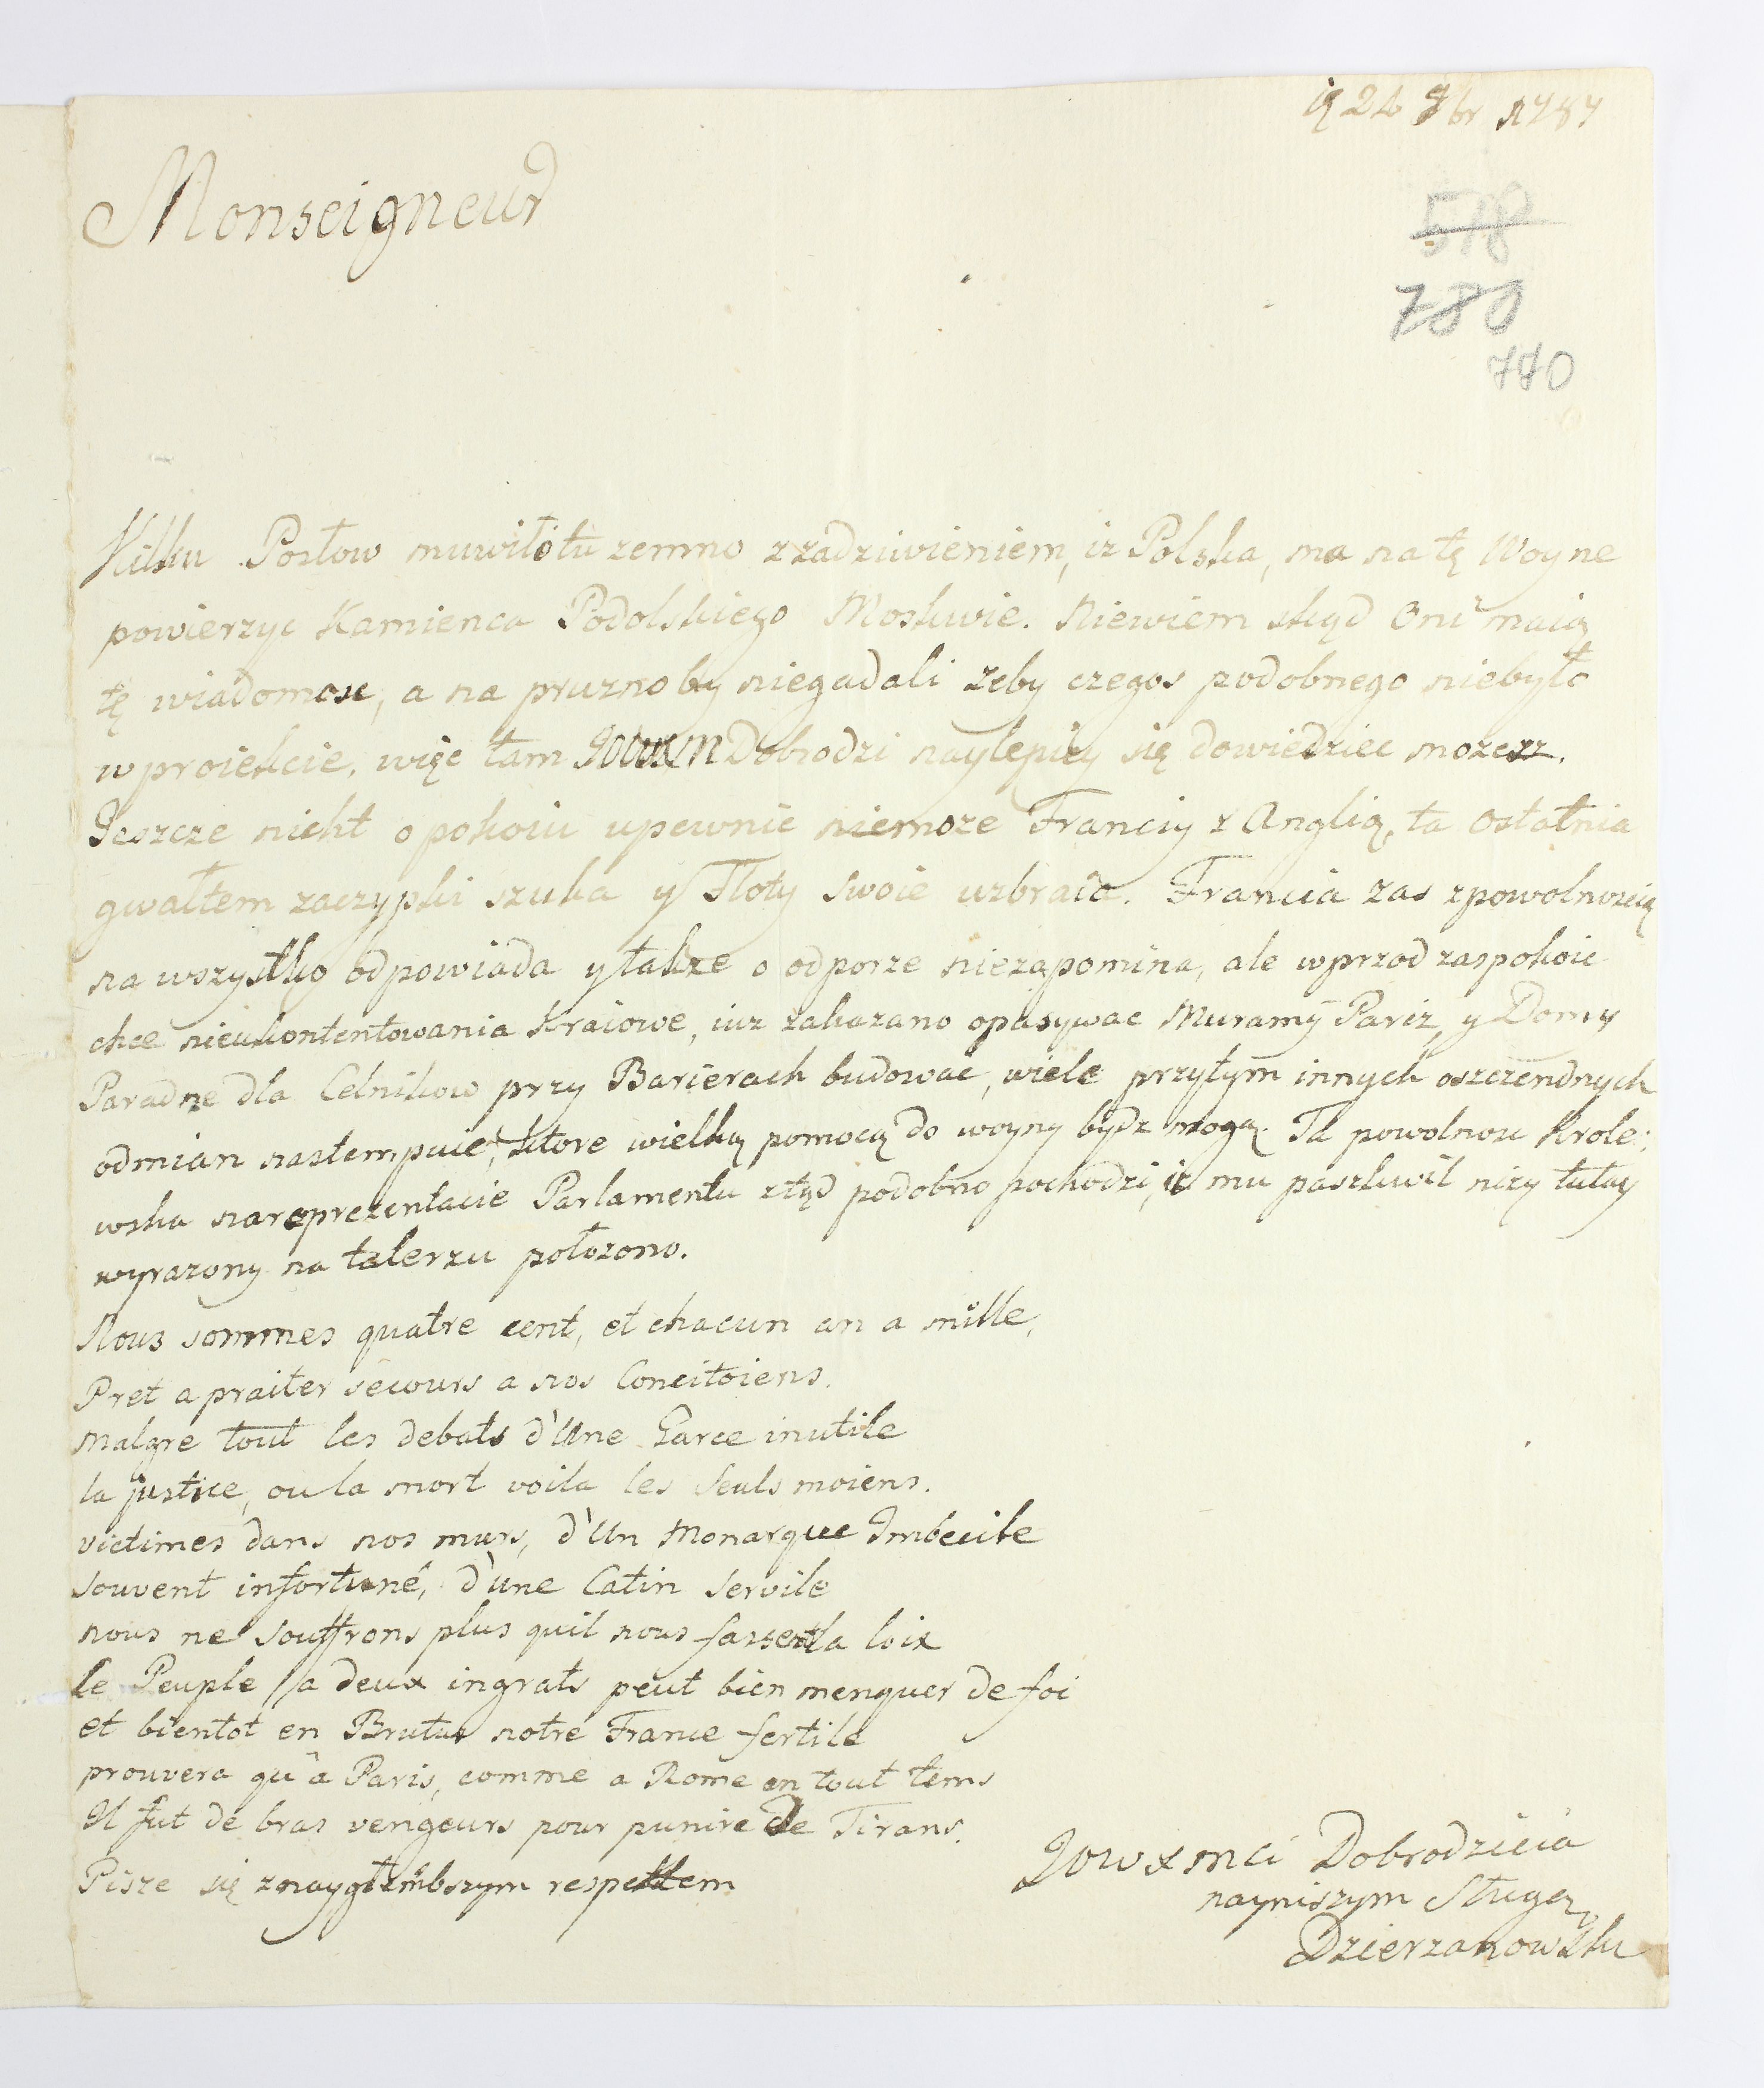 24 9br 1787
Monseigneur
578
780
770
Kilku Posłow muwiło tu zemno z zadziwieniem, iz Polska, ma na tę Woyne
powierzyc Kamienca Podolskiego Moskwie. Niewiem skąd Oni maią
tę wiadomosc, a na pruzno by niegadali zeby czegos podobnego niebyło
w proiekcie, więc tam JOWXM Dobrodzi naylepiey się dowiedziec mozesz.
Jeszcze nicht o pokoiu upewnic niemoze Franciy z Anglią, ta Ostatnia
gwałtem zaczypki szuka y Floty swoie uzbraia. Francia zas z powolnoscią
na wszystko odpowiada y takze o odporze niezapomina, ale wprzod zaspokoic
chce nieukontentowania Kraiowe, iuz zakazano opasywac Muramy Pariz, y Domy
Paradne dla Celnikow przy Barierach budowac, wiele przytym innych oszczendnych
odmian nastempuie, ktore wielką pomocą do woyny bydz mogą. Ta powolnosc Krole:
wska na reprezentacie Parlamentu ztąd podobno pochodzi, iz mu paszkwil nizy tutay
wyrazony na talerzu połozono.
Nous sommes quatre cent, et chacun an a mille,
Pret a praiter secours a nos Concitoiens.
Malgre tout les debats d'Une Garce inutile
la justice, ou la mort voila les seuls moiens.
victimes dans nos murs, d'Un Monarque Imbecile
souvent infortuné, d'une Catin servile
nous ne souffrons plus quil nous fassent la loix
le Peuple a deux ingrats peut bien menquer de foi
et bientot en Brutus notre France fertile
prouvera qu'a Paris, comme a Rome en tout tems
Il fut de bras vengeurs pour punire de Tirans.
Pisze się z naygłembszym respektem
JOWXMci Dobrodzieia
nayniszym Sługą
Dzierzanowski